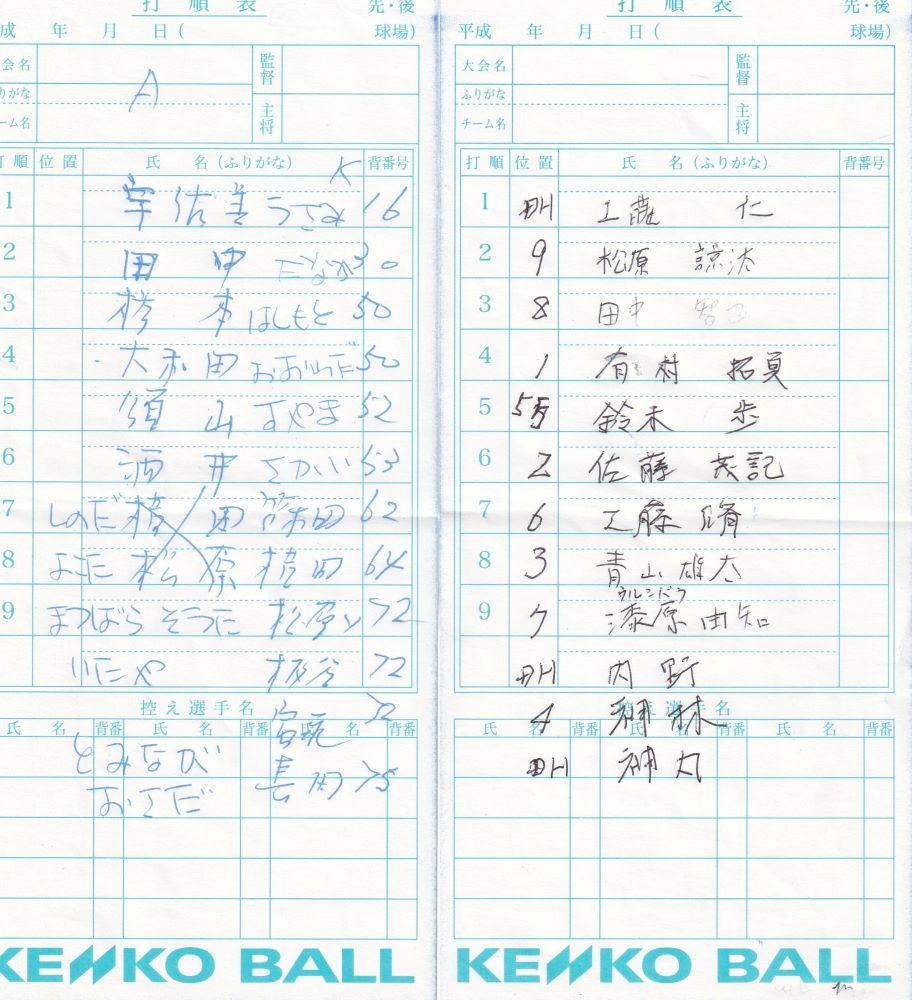 打順表
先・後
成 年 月 日( 球場)
会名
監督
りがな
A
ーム名
主将
打順 位置 氏 名(ふりがな) 背番号
K
1 宇佐美 うさみ 16
2 田中 たなか 30
3 橋本 はしもと 50
4 大和田 おおわだ 50
5 須山 すやま 52
6 酒井 さかい 53
7 しのだ 田 62
8 松原 横田 64
9 まつばら 松原 72
いたや 板谷 72
控え選手名
氏 名 背番 氏 名 背番 氏 名 背番
とみなが
おさだ 長田 75
KENKO BALL
打順表
先・後
平成 年 月 日( 球場)
大会名
監督
ふりがな
チーム名
主将
打順 位置 氏 名(ふりがな) 背番号
1 DH 工藤 仁
2 9 松原 諒汰
3 8 田中 智也
4 1 有村 拓真
5 5 鈴木 歩
6 2 佐藤 茂記
7 6 工藤 脩
8 3 青山雄大
9 7 漆原由知
DH 内野
控え選手名
4 神林
氏 名 背番 氏 名 背番 氏 名 背番
DH 神丸
KENKO BALL